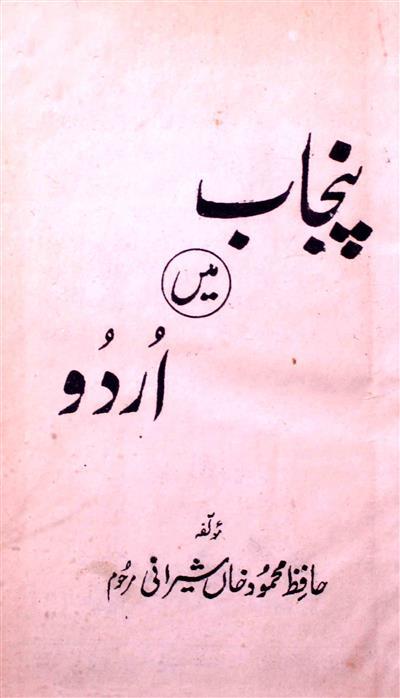 پنجاب
میں
اُردُو
مؤلّفہ
حافظ محمود خاں شیرانی مرحوم